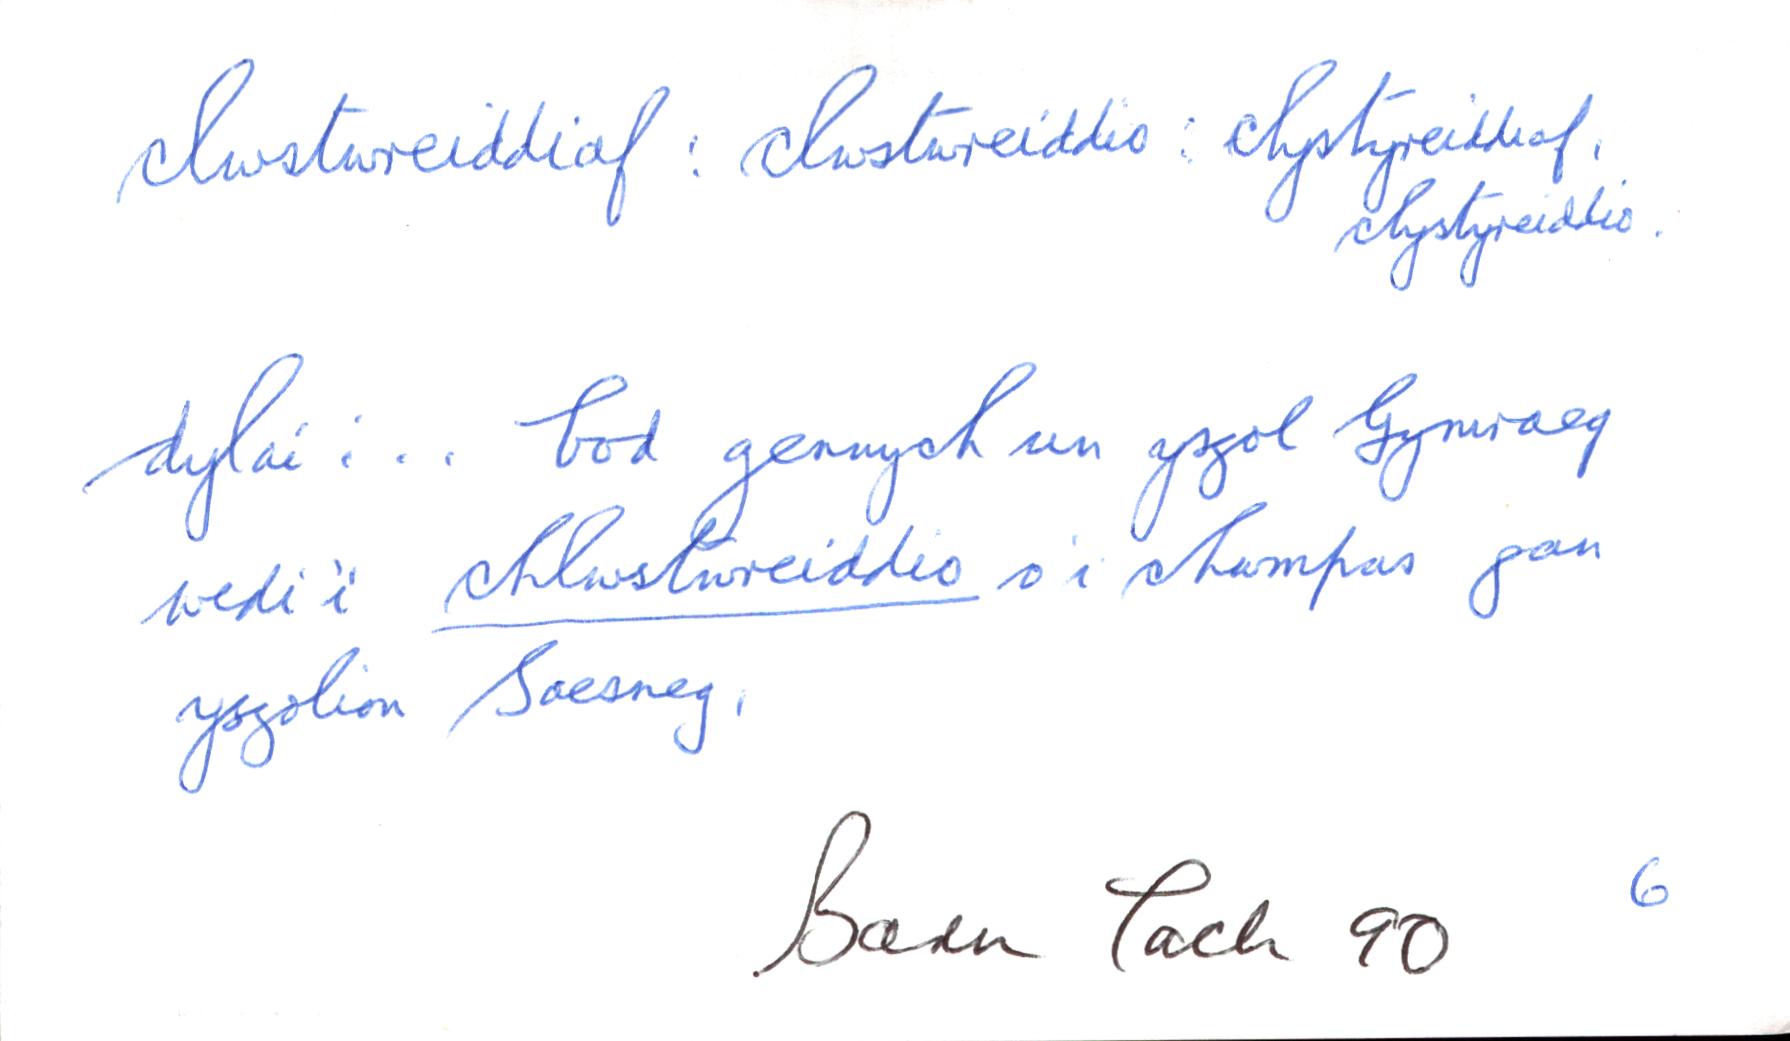 clwstwreiddiaf : clwstwreiddio : clystyreiddiaf.
clystyreiddio.
dylai : . . . bod gennych un ysgol Gymraeg
wedi'i chlwstwreiddio o'i chwmpas gan
ysgolion Saesneg.
Barn Tach 90 6